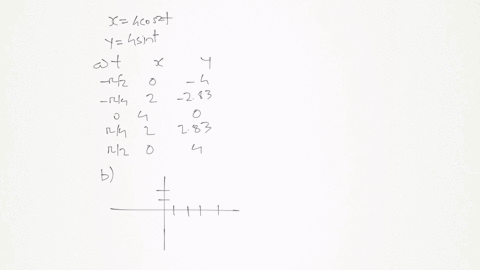 x=4cos²t
y=4sint
a) t x y
-π/2 0 -4
-π/4 2 -2.83
0 4 0
π/4 2 2.83
π/2 0 4
b)